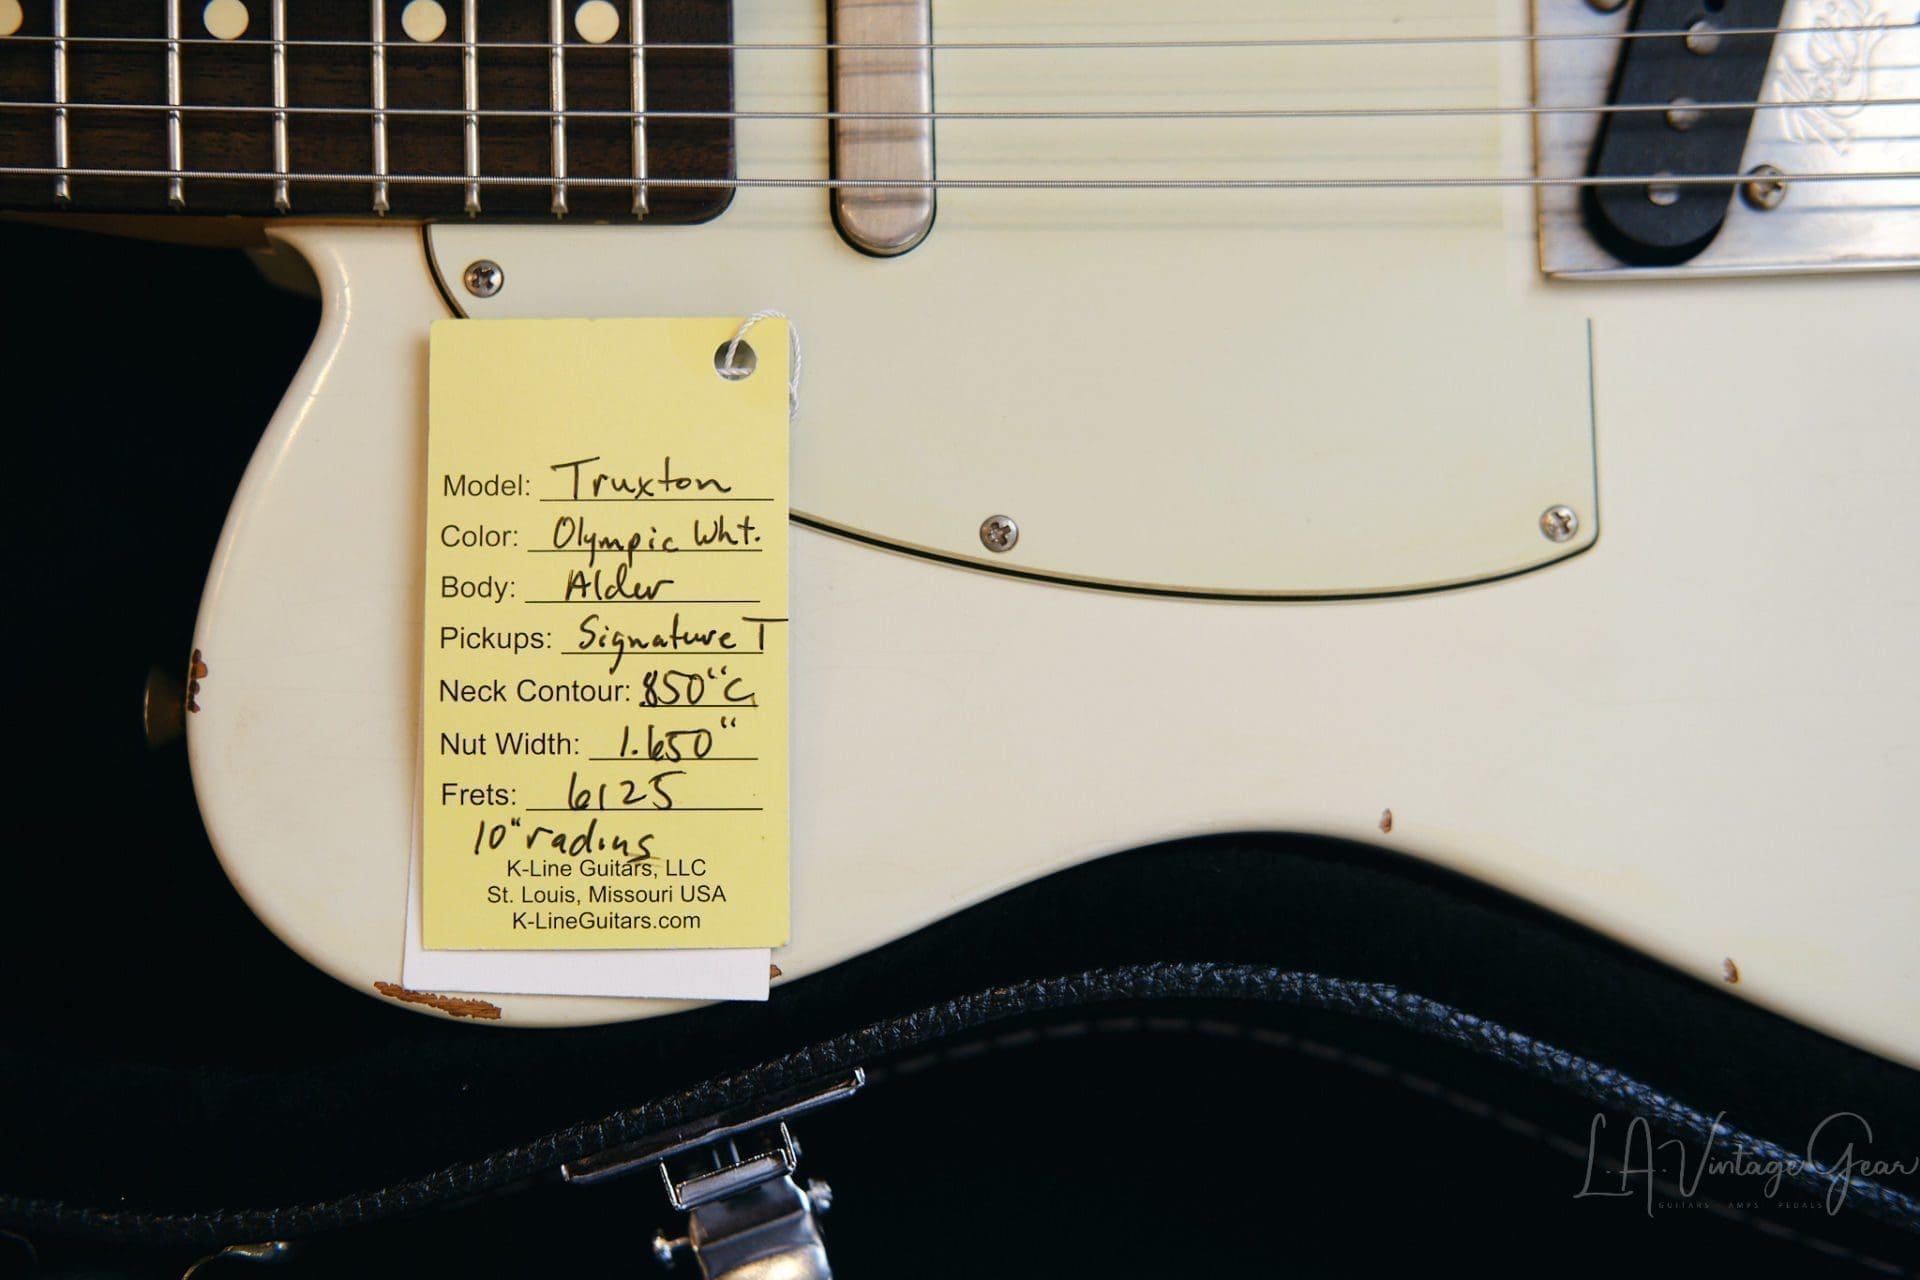 Model: Truxton
Color: Olympic Wht.
Body: Alder
Pickups: Signature T
Neck Contour: .850" C
Nut Width: 1.650"
Frets: 6125
10" radius
K-Line Guitars, LLC
St. Louis, Missouri USA
K-LineGuitars.com
L.A. Vintage Gear
GUITARS AMPS PEDALS